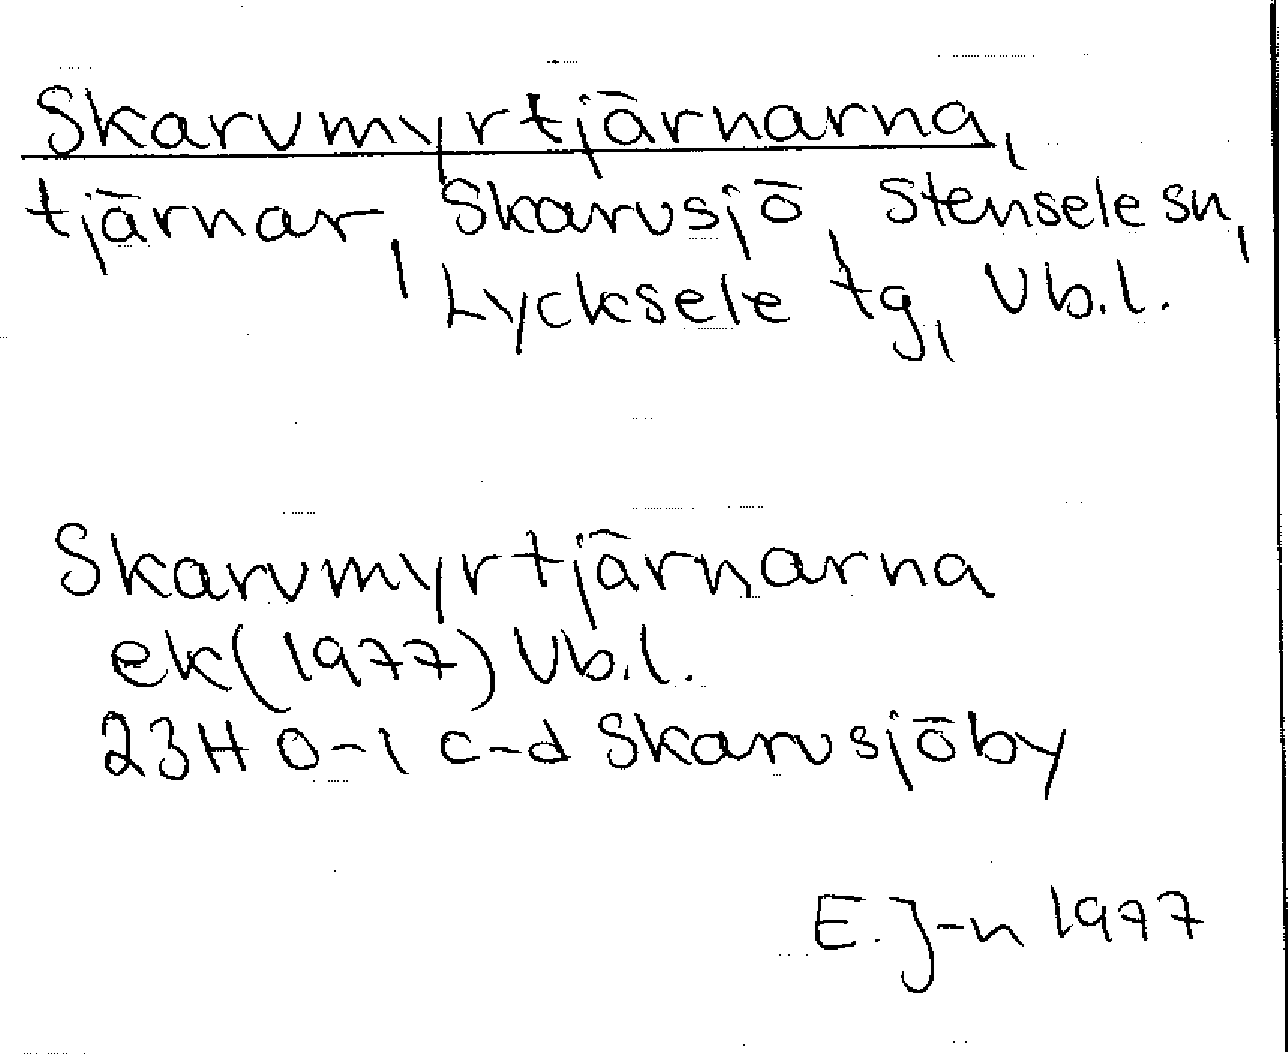 Skarvmyrtjärnarna,
tjärnar, Skarvsjö, Stensele sn,
Lycksele tg, Vb.l.
Skarvmyrtjärnarna
ek (1977) Vb.l.
23H 0-1 c-d Skarvsjöby
E. J-n 1977